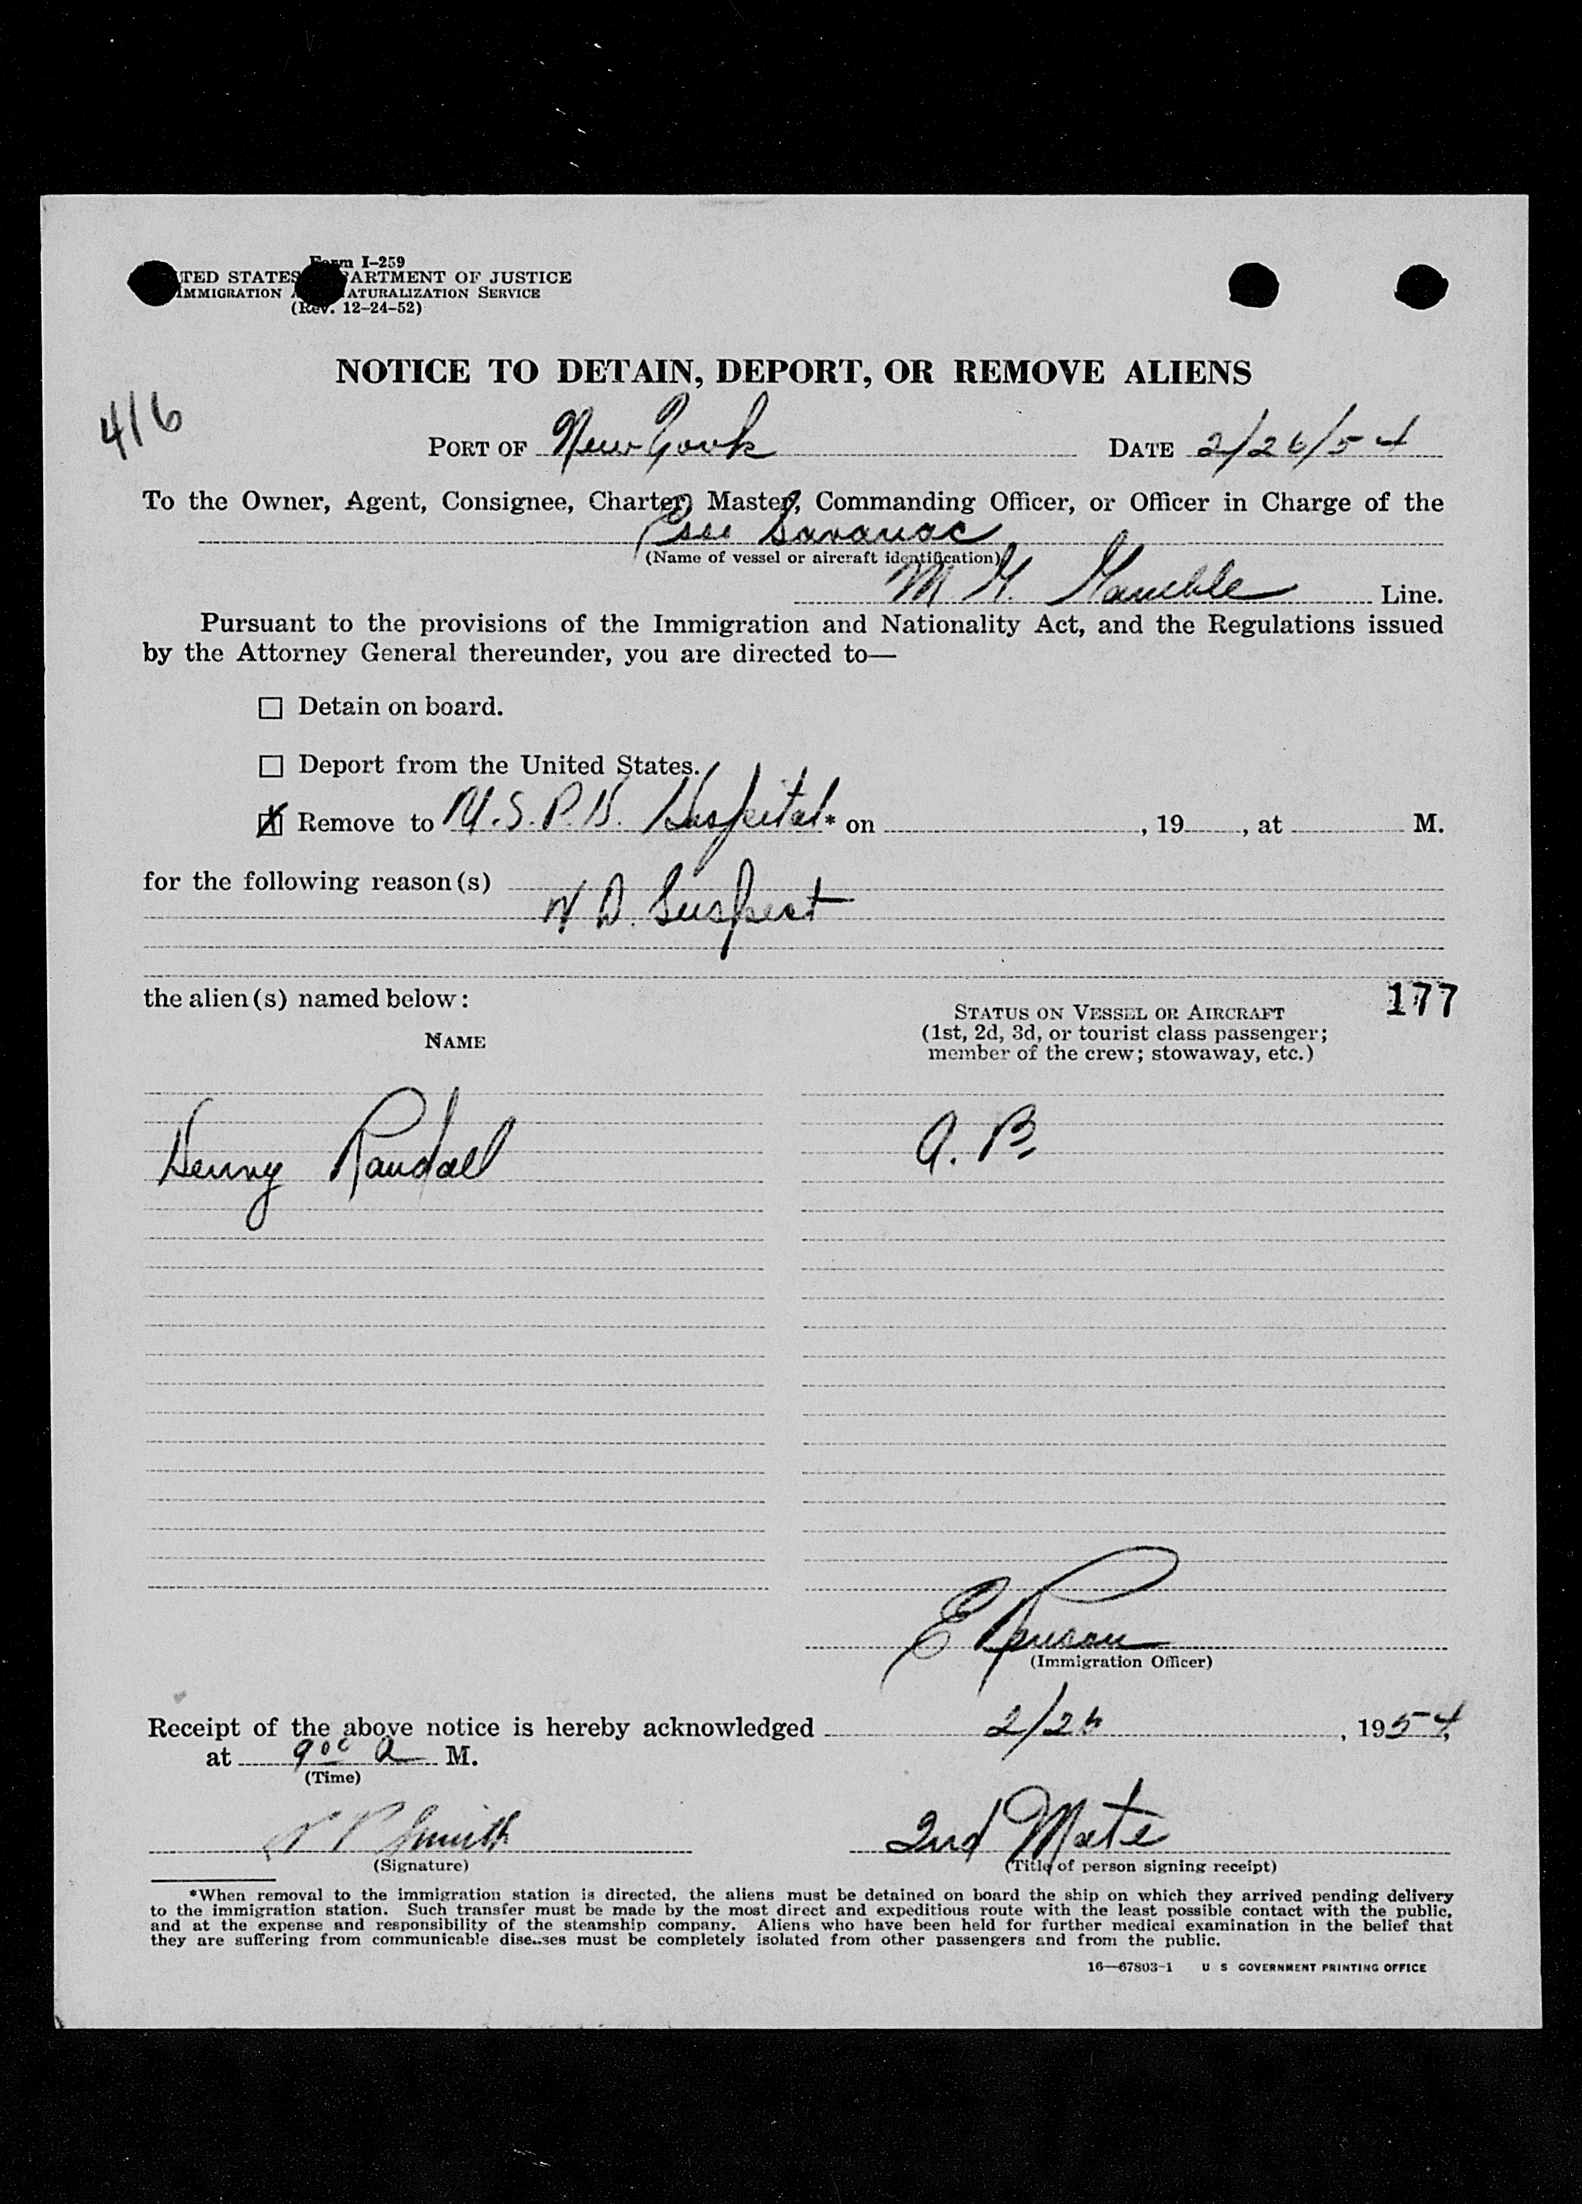 Form I-259
TED STATES PARTMENT OF JUSTICE
IMMIGRATION A ATURALIZATION SERVICE
(Rev. 12-24-52)
NOTICE TO DETAIN, DEPORT, OR REMOVE ALIENS
416
PORT OF New York DATE 2/26/54
To the Owner, Agent, Consignee, Charter, Master, Commanding Officer, or Officer in Charge of the
Saranac
(Name of vessel or aircraft identification)
M Gamble Line.
Pursuant to the provisions of the Immigration and Nationality Act, and the Regulations issued
by the Attorney General thereunder, you are directed to—
Detain on board.
Deport from the United States.
Remove to U.S.P.H. Hospital* on , 19 , at M.
for the following reason(s)
V D. Suspect
the alien(s) named below:
177
NAME
STATUS ON VESSEL OR AIRCRAFT
(1st, 2d, 3d, or tourist class passenger;
member of the crew; stowaway, etc.)
Henny Randall A. B.
E
(Immigration Officer)
Receipt of the above notice is hereby acknowledged 2/26, 1954,
at 9 00 A M.
(Time)
Smith 2nd Mate
(Signature) (Title of person signing receipt)
*When removal to the immigration station is directed, the aliens must be detained on board the ship on which they arrived pending delivery
to the immigration station. Such transfer must be made by the most direct and expeditious route with the least possible contact with the public,
and at the expense and responsibility of the steamship company. Aliens who have been held for further medical examination in the belief that
they are suffering from communicable diseases must be completely isolated from other passengers and from the public.
16—67803-1 U S GOVERNMENT PRINTING OFFICE